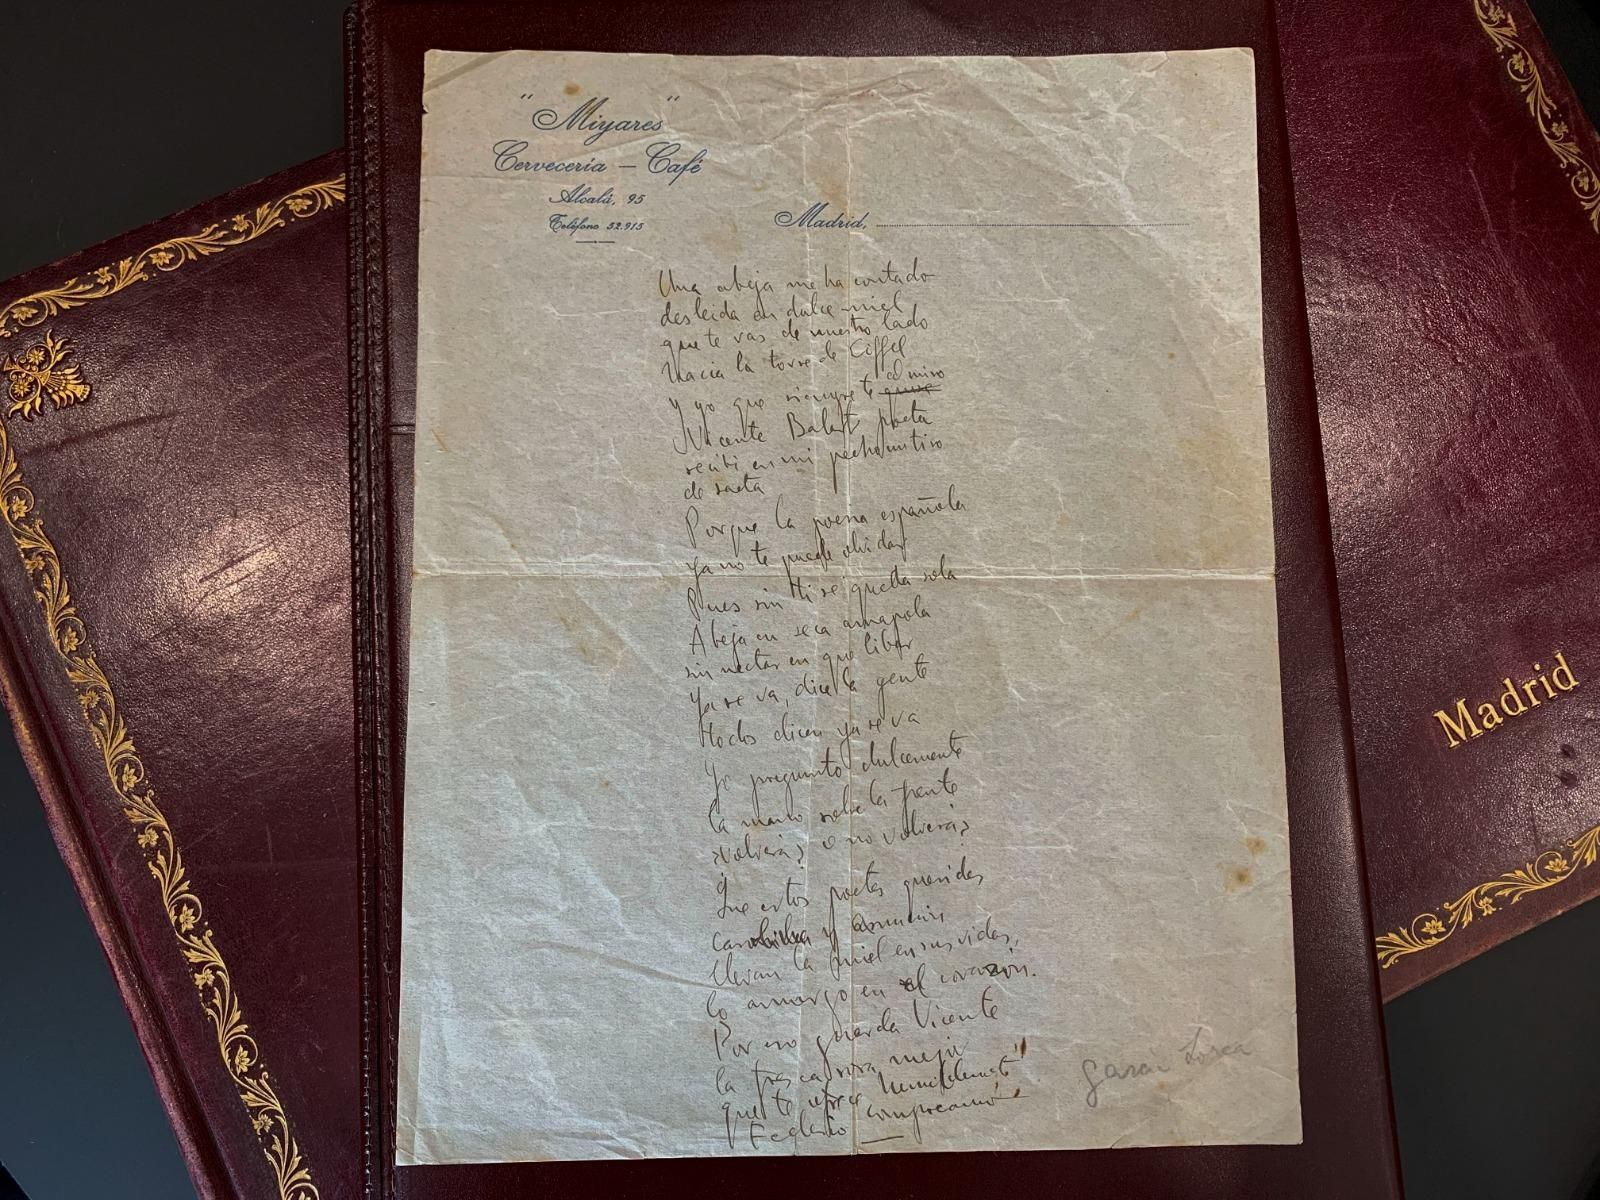 "Miyares"
Cervecería — Café
Alcalá, 95
Teléfono 52.915
Madrid,
Una abeja me ha contado
desleida en dulce miel
que te vas de nuestro lado
hacia la torre de Eiffel
y yo que siempre te admiro
Vicente Balart poeta
recibi en mi pecho un tiro
de saeta
Porque la poesia española
ya no te puede olvidar
Pues sin ti se queda sola
Abeja en seca amapola
sin nectar en que libar
Ya se va, dice la gente
todos dicen ya se va
Yo pregunto dulcemente
la mano sobre la frente
volverás o no volverás
Que estos poetas queridos
y
llevan la miel en sus vidas,
lo amargo en el corazón.
Por eso guarda Vicente
la fresca rosa mejor
que te ofrece humildemente
Federico
García Lorca
Madrid